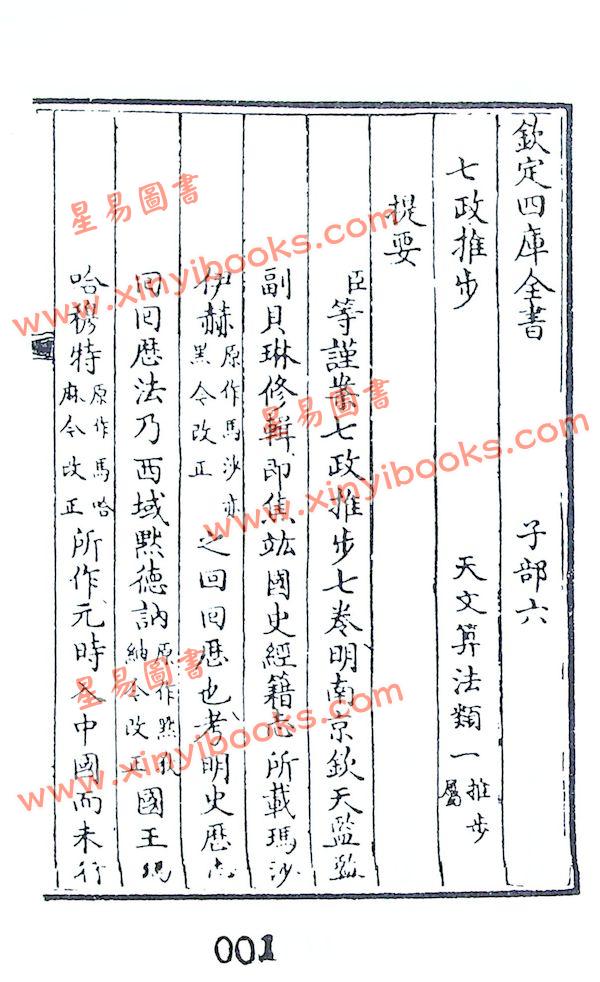 欽定四庫全書 子部六
七政推步 天文算法類一 推步屬
提要
臣等謹案七政推步七卷明南京欽天監監
副貝琳修輯即焦竑國史經籍志所載瑪沙
伊赫 原作馬沙亦黑今改正 之回回歴也考明史歴志
回回歴法乃西域黙德訥 原作黙狄納今改正 國王瑪
哈穆特 原作馬哈麻今改正 所作元時入中國而未行
星易圖書
www.xinyibooks.com
星易圖書
www.xinyibooks.com
星易圖書
www.xinyibooks.com
001